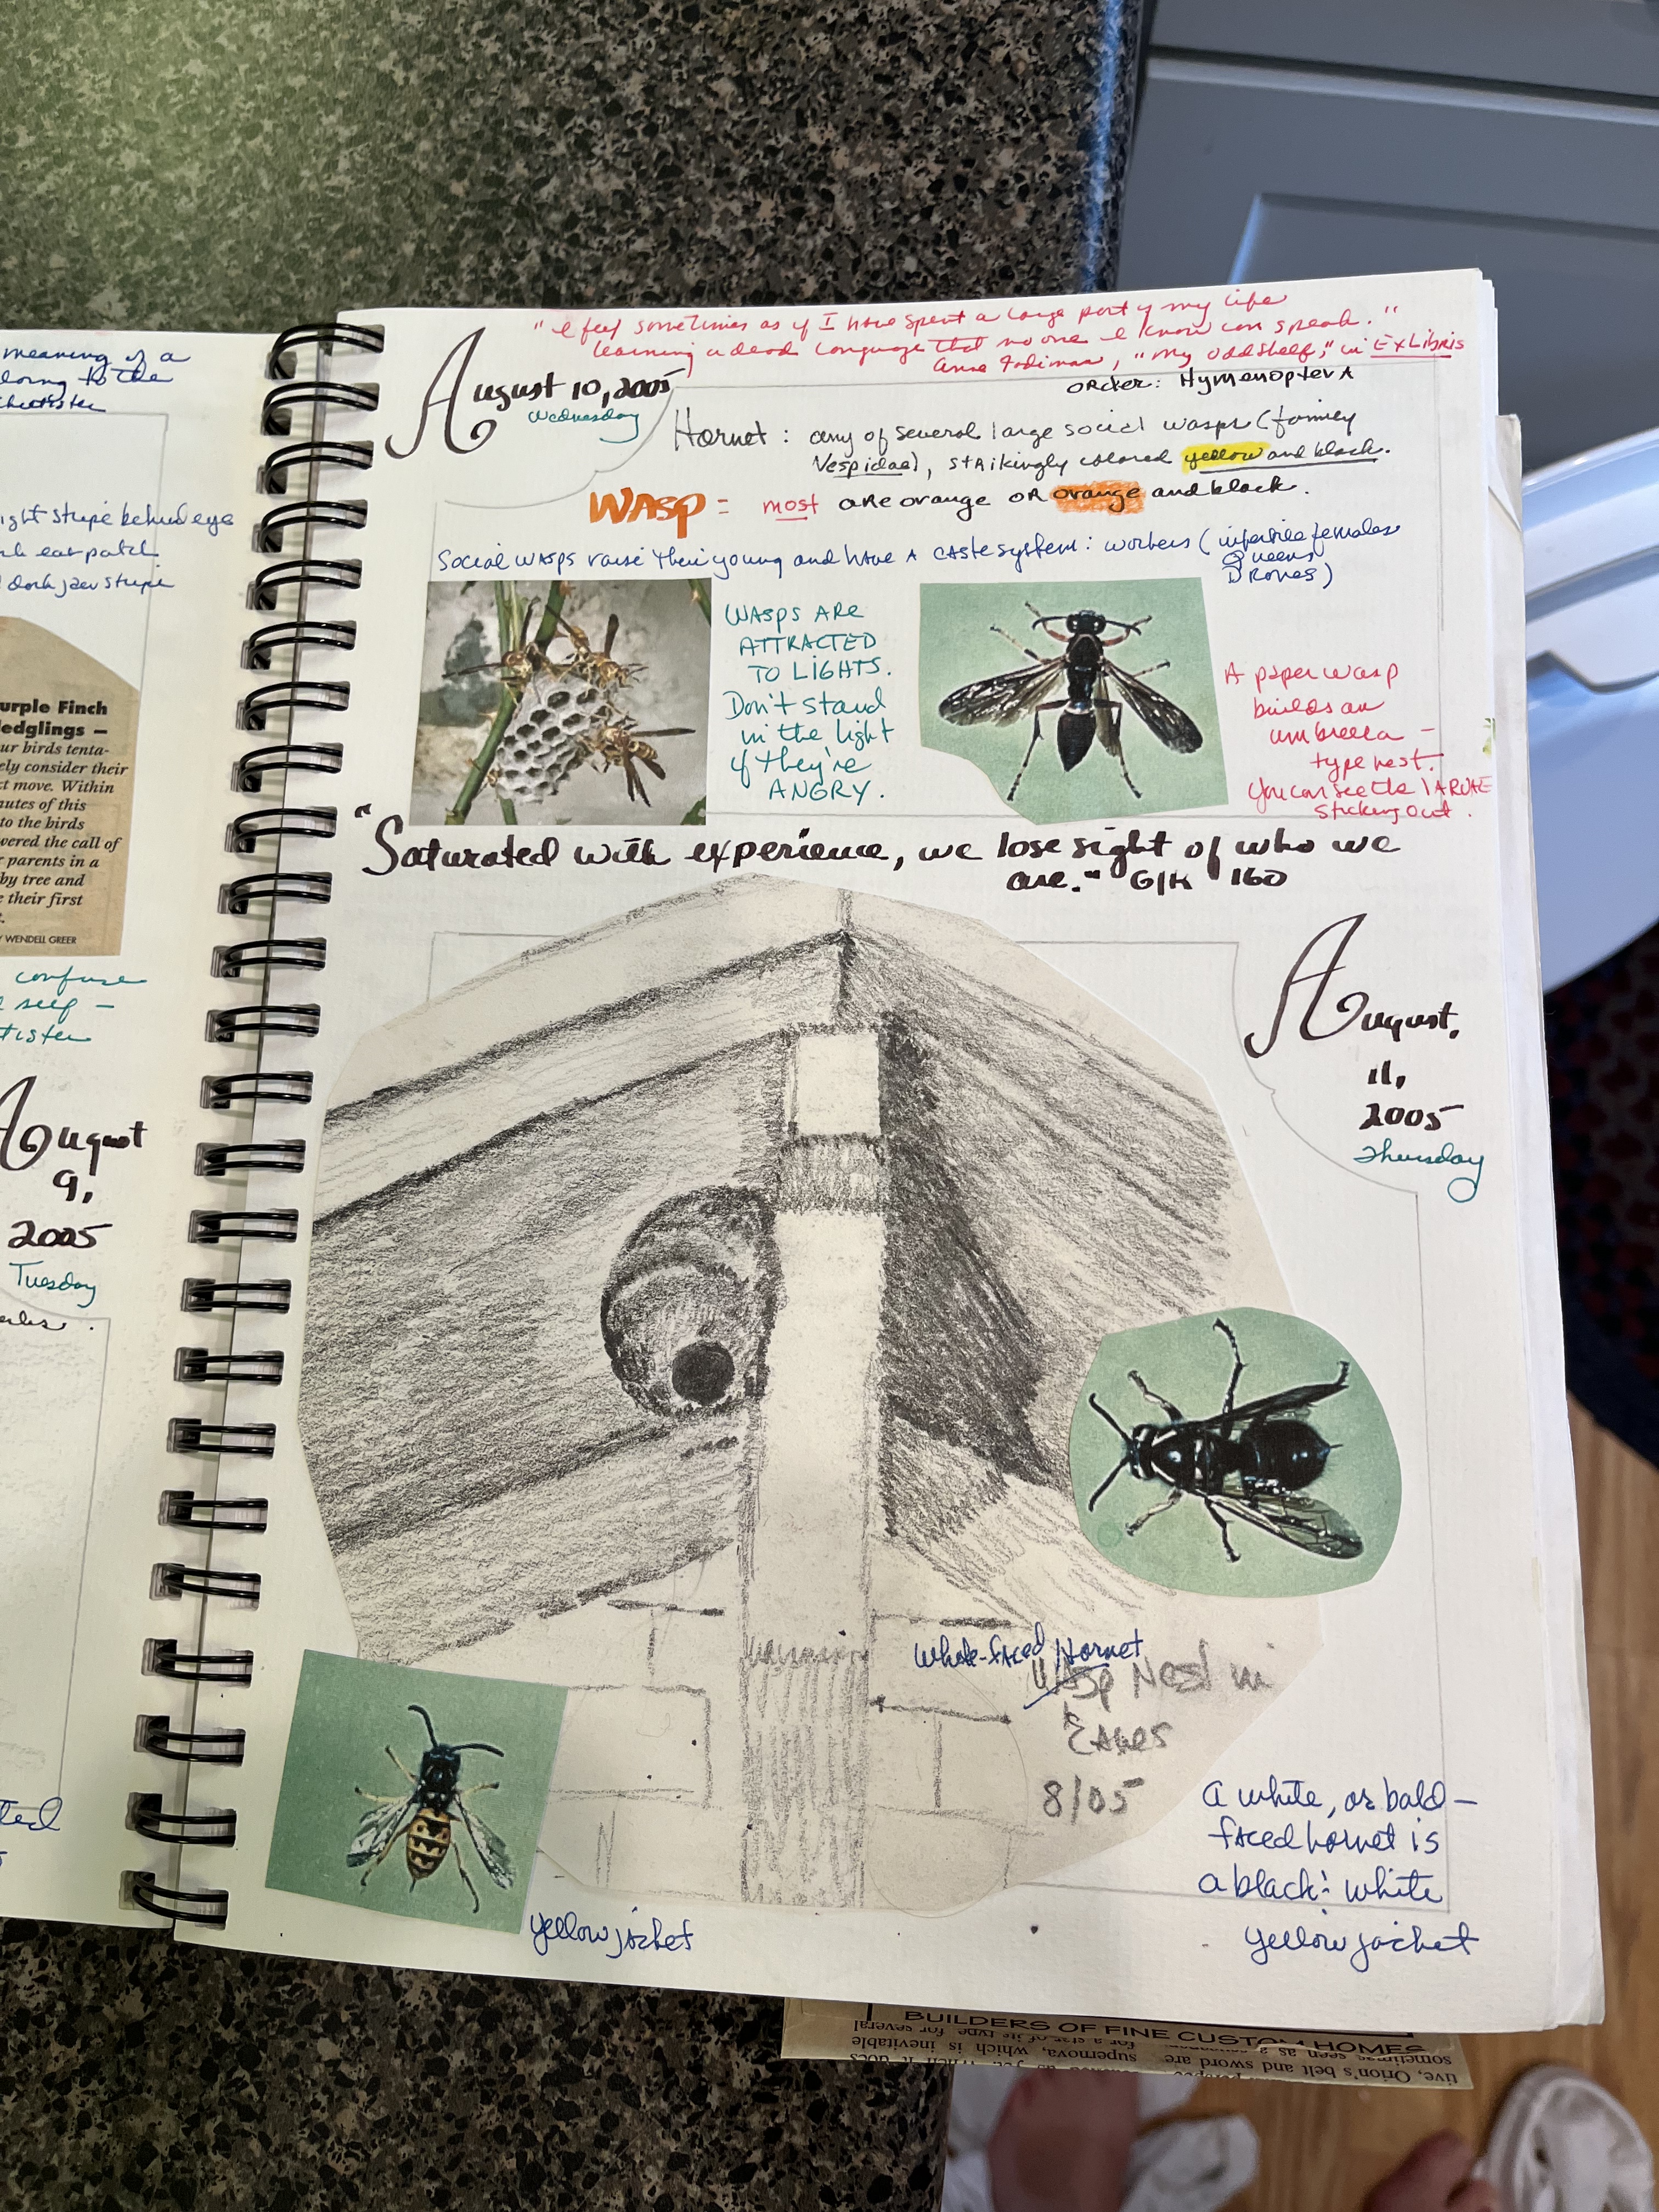 meaning of a
to the
ight stripe behind eye
ear patch
dark jaw stripe
urple Finch
ledglings —
ur birds tenta-
ely consider their
t move. Within
nutes of this
to the birds
vered the call of
parents in a
by tree and
their first
WENDELL GREER
confuse
self —
August
9,
2005
Tuesday
ted
"I feel sometimes as if I have spent a large part of my life
learning a dead language that no one I know can speak."
Anne Fadiman, "My Odd Shelf," in Ex Libris
August 10, 2005
Wednesday
Order: Hymenoptera
Hornet: any of several large social wasps (family
Vespidae), strikingly colored yellow and black.
WASP = most are orange or orange and black.
Social wasps raise their young and have a caste system: workers (infertile females
Queens
Drones)
WASPS ARE
ATTRACTED
TO LIGHTS.
Don't stand
in the light
if they're
ANGRY.
A paper wasp
builds an
umbrella –
type nest.
You can see the LARVAE
sticking out.
"Saturated with experience, we lose sight of who we
are." G/K 160
August,
11,
2005
Thursday
White-faced Hornet
Wasp Nest in
Eaves
8/05
A white, or bald–
faced hornet is
a black & white
yellow jacket
yellow jacket
BUILDERS OF FINE CUSTOM HOMES
sometimes seen as a
supernova, which is inevitable
for a star of its type, for several
tive, Orion's belt and sword are